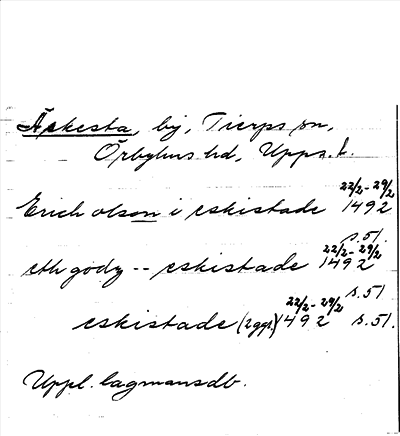 Äskesta, by, Tierps sn,
Örbyhus hd, Upps. l.
22/2 - 29/2
Erich olson i eskistade 1492
s. 51
22/2 - 29/2
eth godz -- eskistade 1492
s. 51
22/2 - 29/2
eskistade (2 ggr) 1492 s. 51.
Uppl. lagmansdb.